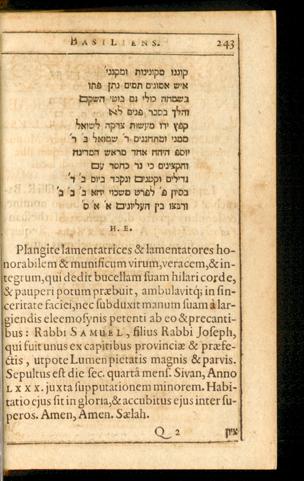 BASILIENS. 243
קוננו מקוננות ומקנני
איש אמונים תמים נתן פתו
בשמחה כולי גם בוטי השקם
והלך במבר פנים לא
קפץ ידו מעשות צדקה לשואל
ממנו ומתחננים ר׳ שמואל ב׳ ר׳
יוסף היה אחד מראש המדינה
והקצינים כי נר כחסר עם
גדולים וקטנים ונקבר ביום ב׳ ר׳
בסיון פ׳ לפרט
ורבצו בין העליונים א׳ א׳ ס׳
H. E.
Plangite lamentatrices & lamentatores ho-
norabilem & munificum virum, veracem, & in-
tegrum, qui dedit bucellam suam hilari corde,
& pauperi potum præbuit, ambulavitq; in sin-
ceritate faciei, nec subduxit manum suam à lar-
giendis eleemosynis petenti ab eo & precanti-
bus: Rabbi SAMUEL, filius Rabbi Joseph,
qui fuit unus ex capitibus provinciæ & præfe-
ctis, utpote Lumen pietatis magnis & parvis.
Sepultus est die sec. quartâ mens. Sivan, Anno
LXXX. juxta supputationem minorem. Habi-
tatio ejus sit in gloria, & accubitus ejus inter su-
peros. Amen, Amen. Sælah.
Q 2 ציון